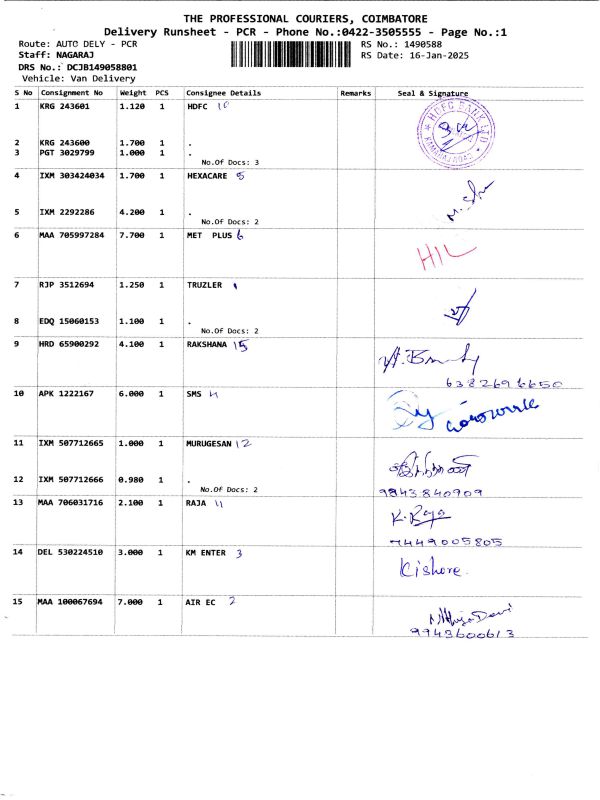 THE PROFESSIONAL COURIERS, COIMBATORE
Delivery Runsheet - PCR - Phone No.:0422-3505555 - Page No.:1
Route: AUTO DELY - PCR RS No.: 1490588
Staff: NAGARAJ RS Date: 16-Jan-2025
DRS No.: DCJB149058801
Vehicle: Van Delivery
S No Consignment No Weight PCS Consignee Details Remarks Seal & Signature
1 KRG 243601 1.120 1 HDFC 10
HDFC BANK LTD
2 KRG 243600 1.700 1 .
3 PGT 3029799 1.000 1 .
No.Of Docs: 3
4 IXM 303424034 1.700 1 HEXACARE 5
5 IXM 2292286 4.200 1 .
No.Of Docs: 2
6 MAA 705997284 7.700 1 MET PLUS 6
HIL
7 RJP 3512694 1.250 1 TRUZLER
8 EDQ 15060153 1.100 1 .
No.Of Docs: 2
9 HRD 65900292 4.100 1 RAKSHANA 15
6382696650
10 APK 1222167 6.000 1 SMS 11
11 IXM 507712665 1.000 1 MURUGESAN 12
12 IXM 507712666 0.980 1 .
No.Of Docs: 2
9843840909
13 MAA 706031716 2.100 1 RAJA 11
K. Raja
7449005805
14 DEL 530224510 3.000 1 KM ENTER 3
Kishore.
15 MAA 100067694 7.000 1 AIR EC 2
Devi
9943600613